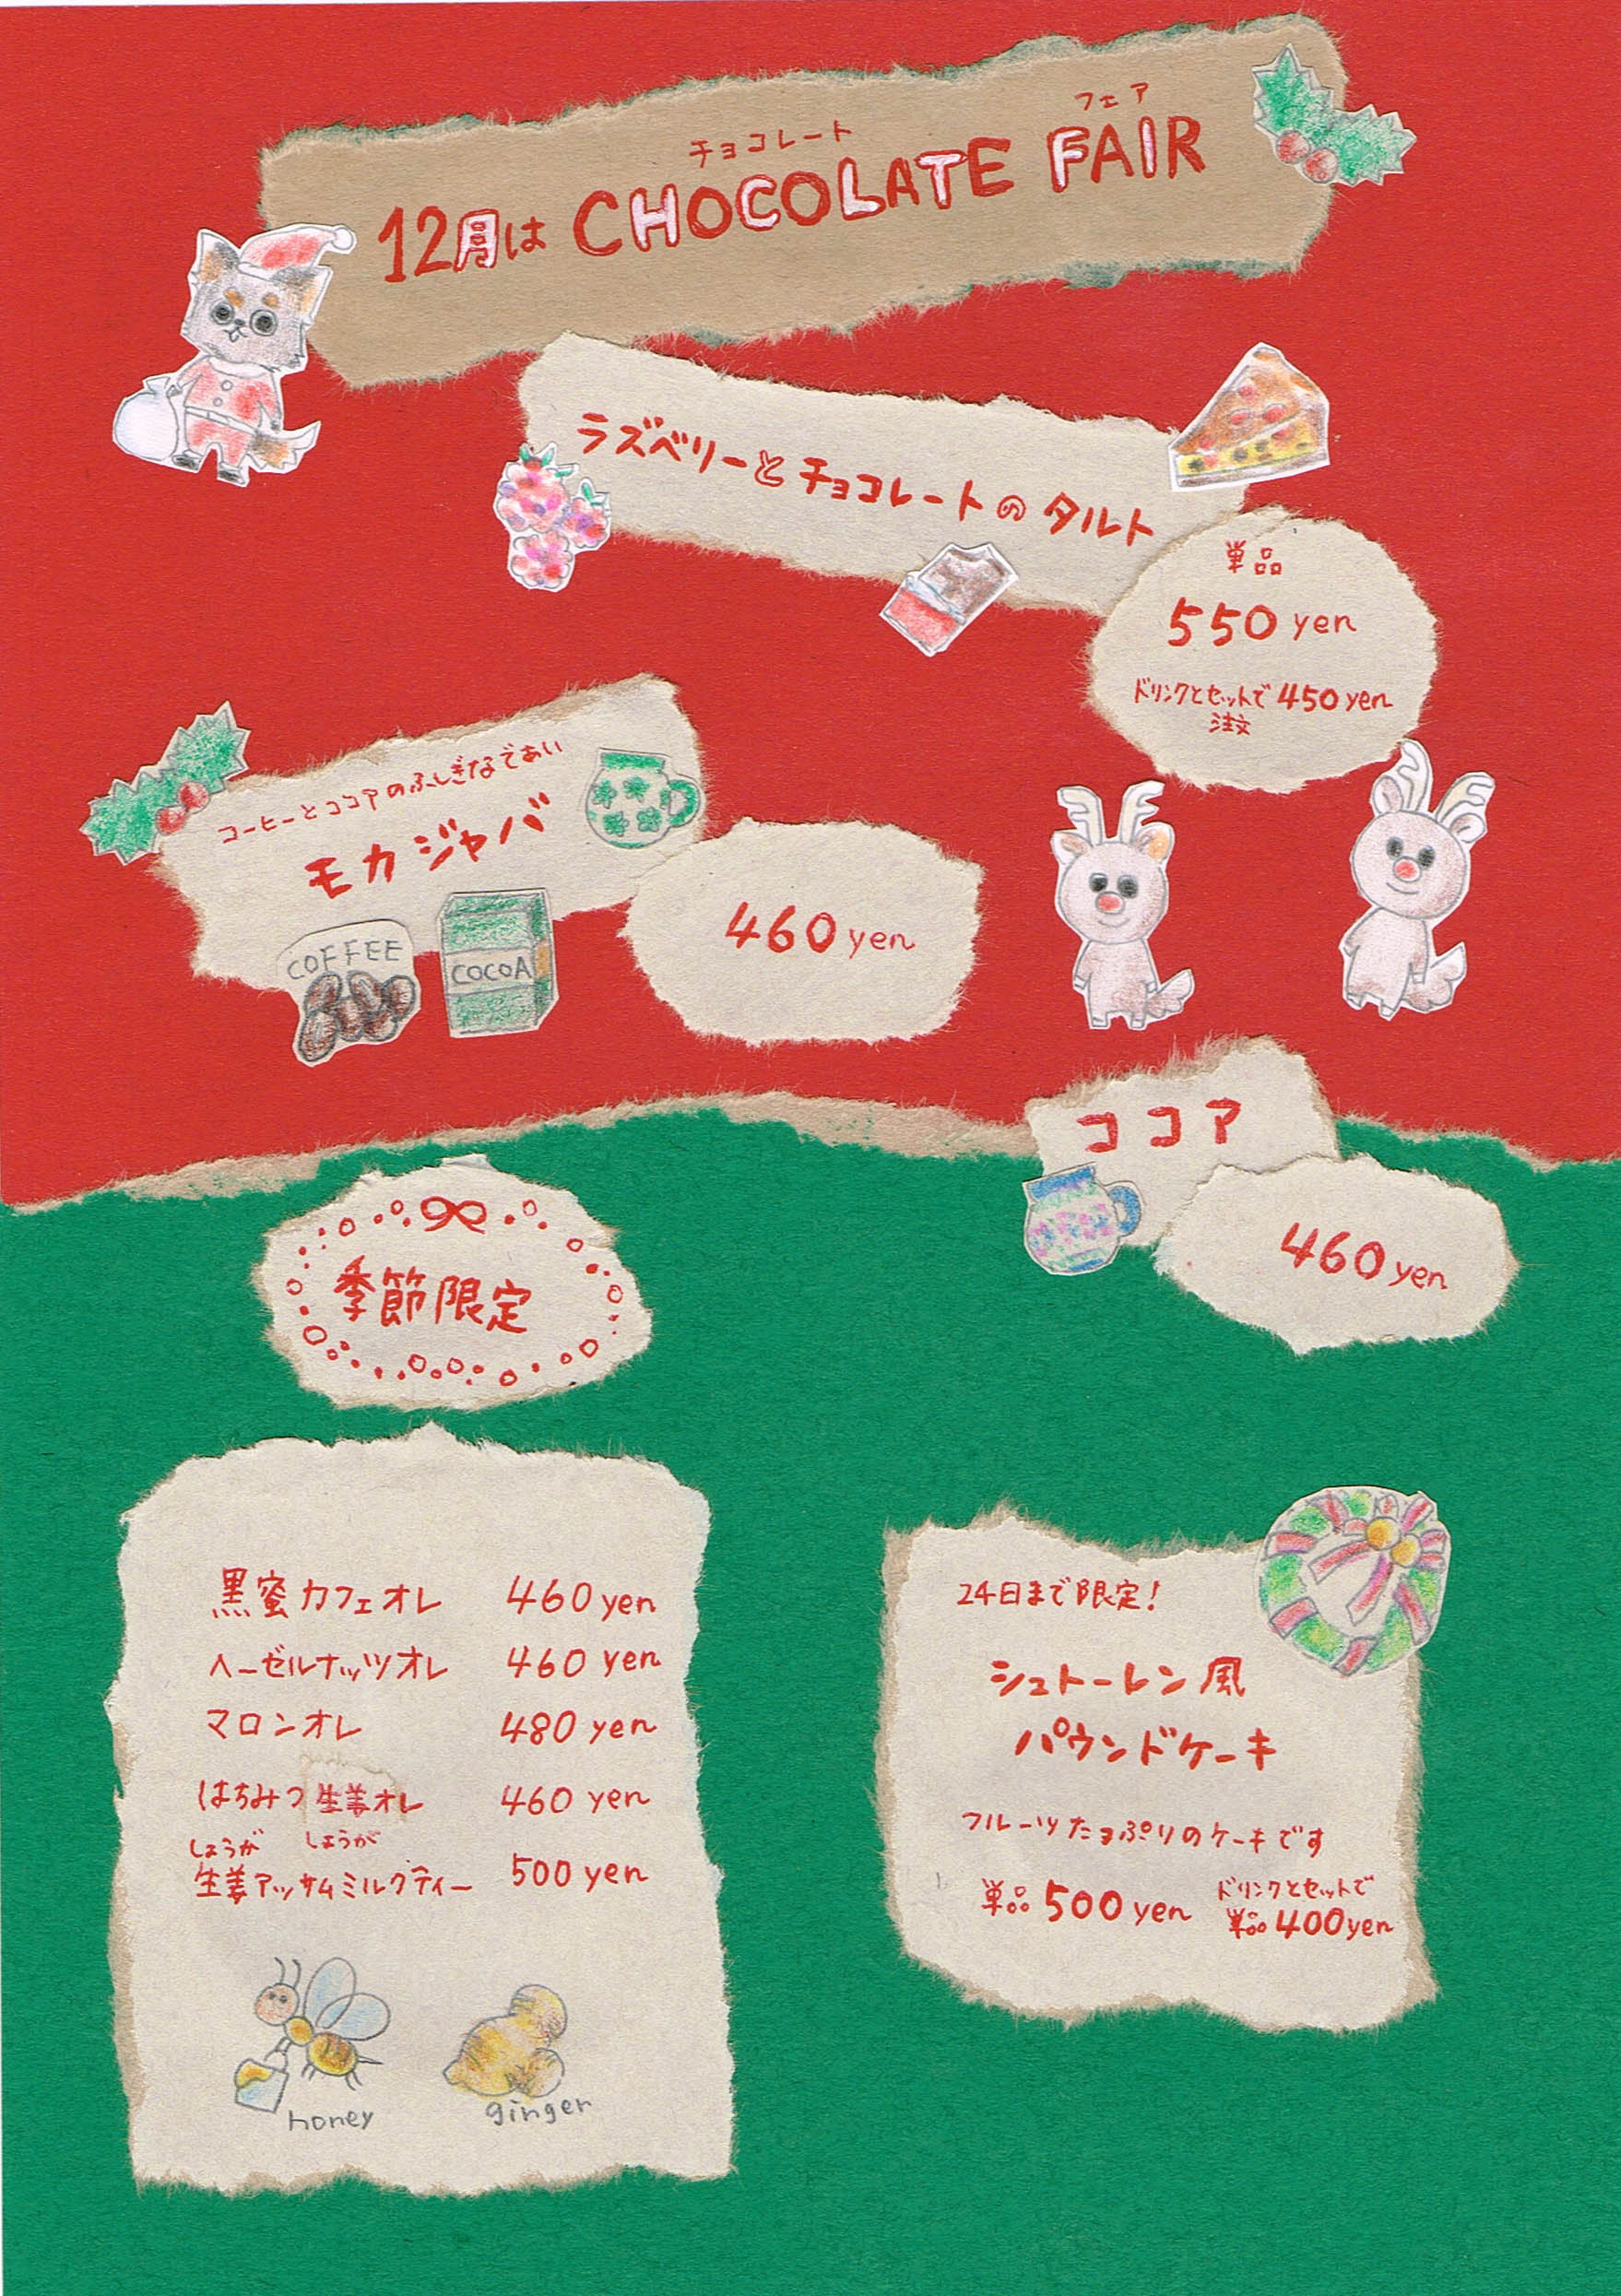 チョコレート フェア
12月は CHOCOLATE FAIR
ラズベリーとチョコレートのタルト
単品
550 yen
ドリンクとセットで 450 yen
注文
コーヒーとココアのふしぎなであい
モカジャバ
COFFEE
COCOA
460 yen
ココア
460 yen
季節限定
黒蜜カフェオレ 460 yen
ヘーゼルナッツオレ 460 yen
マロンオレ 480 yen
はちみつ生姜オレ 460 yen
しょうが しょうが
生姜アッサムミルクティー 500 yen
honey
ginger
24日まで限定!
シュトーレン風
パウンドケーキ
フルーツたっぷりのケーキです
単品 500 yen
ドリンクとセットで
単品 400 yen